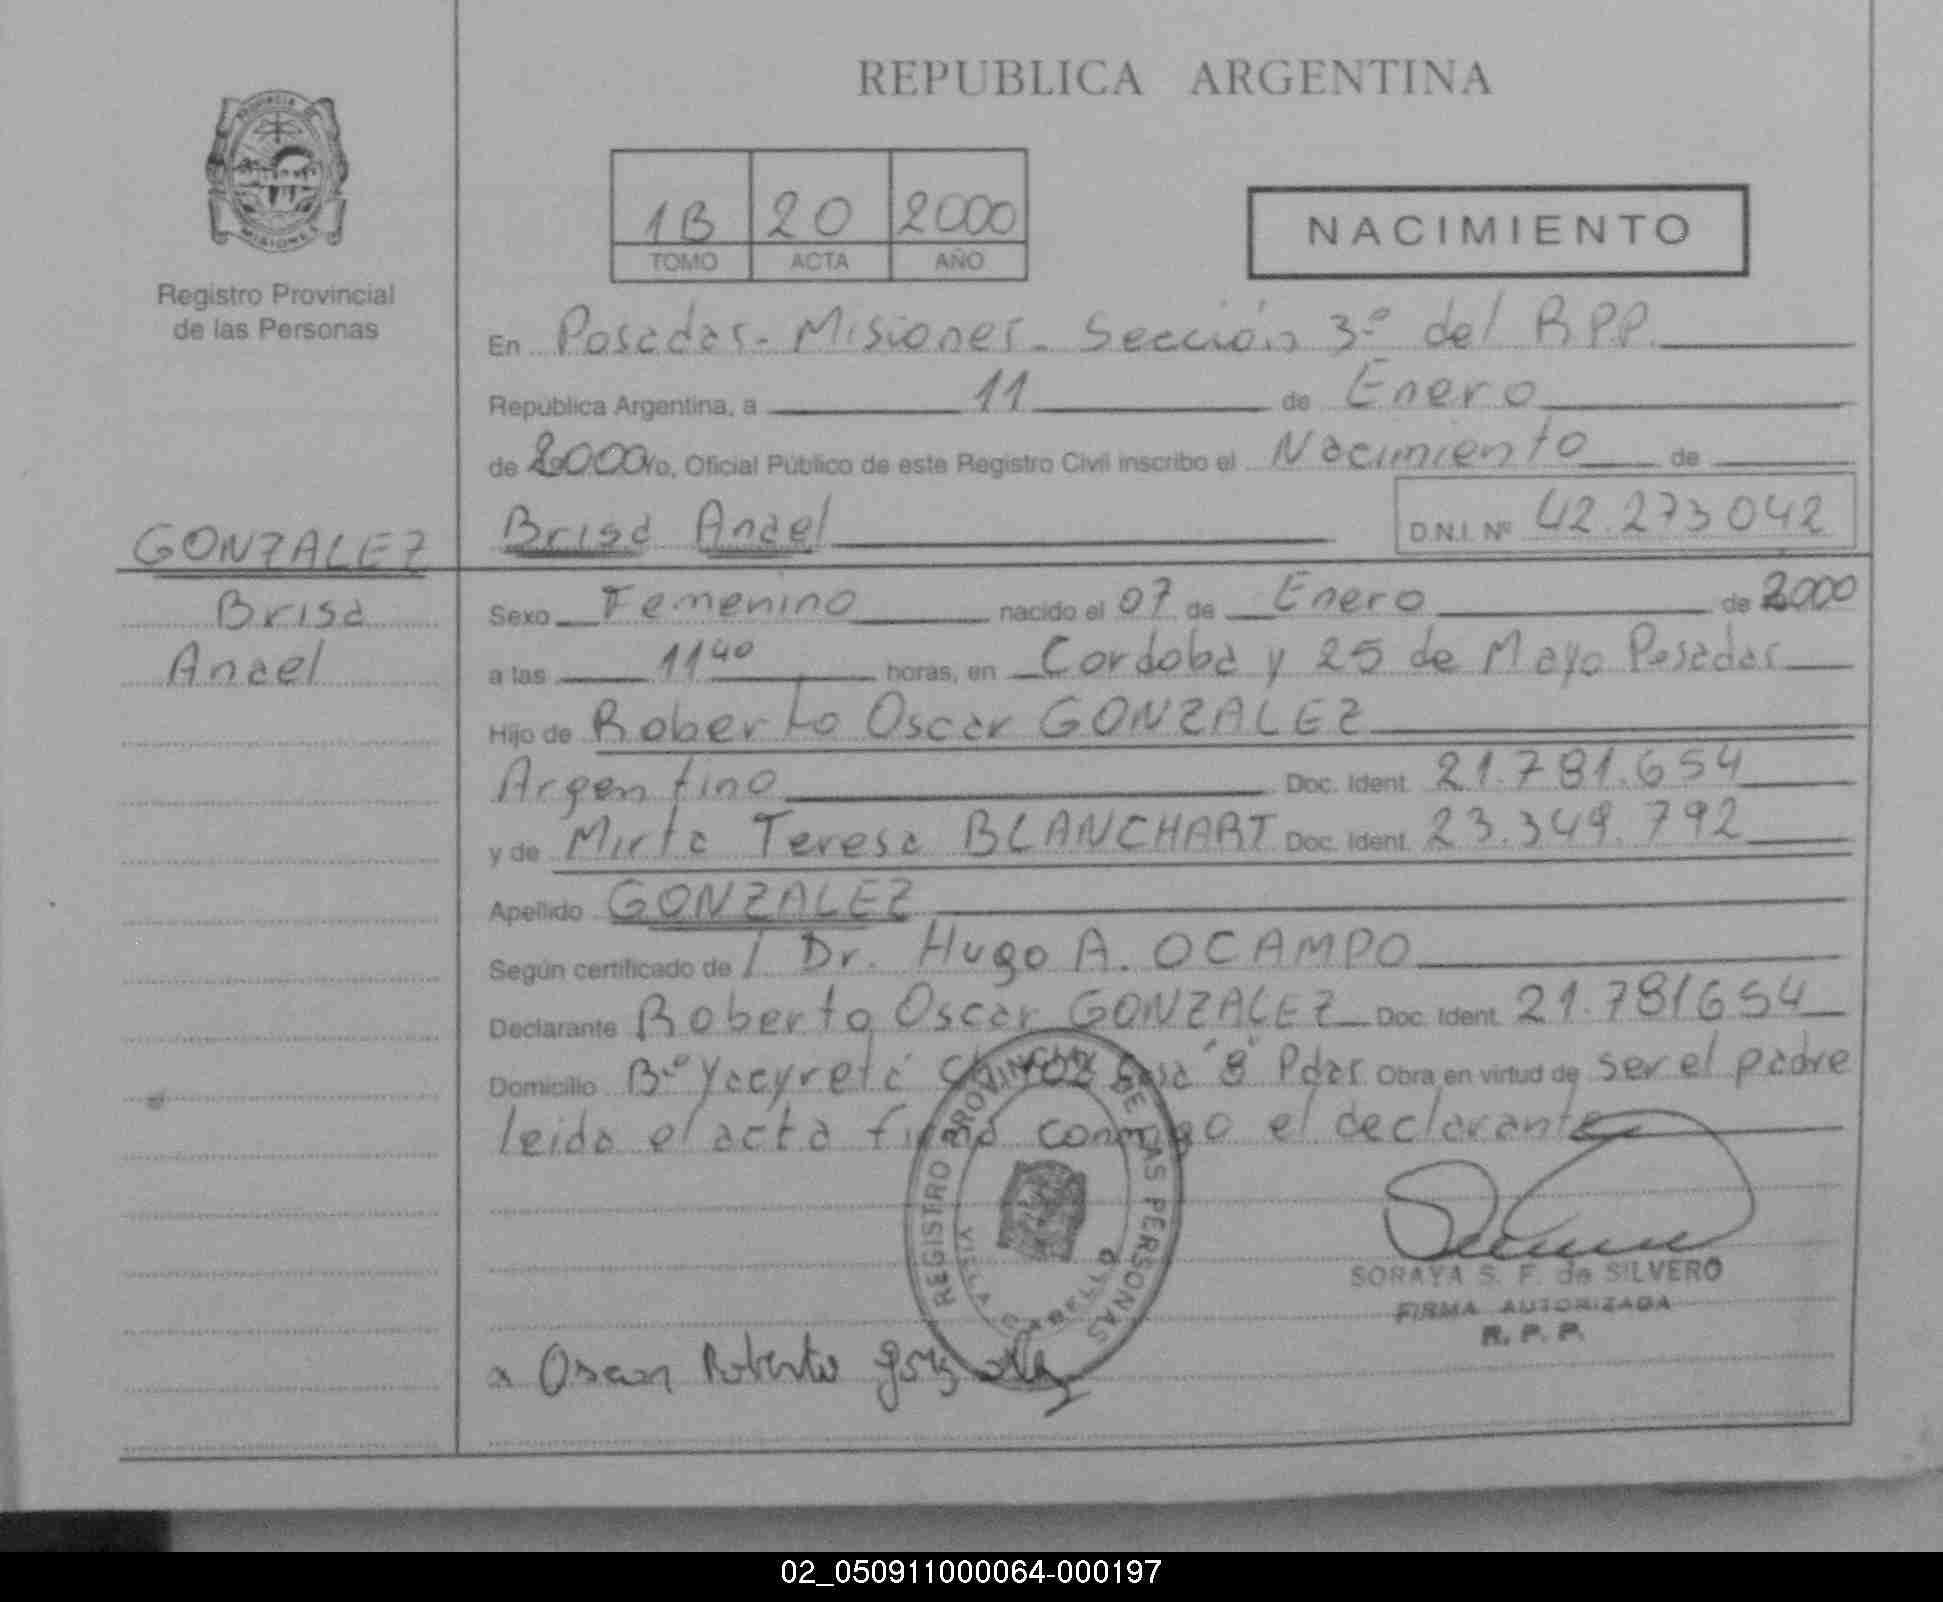 REPUBLICA ARGENTINA
PROVINCIA DE
MISIONES
Registro Provincial
de las Personas
1B 20 2000
TOMO ACTA AÑO
NACIMIENTO
En Posadas - Misiones - Sección 3º del R.P.P.
República Argentina, a 11 de Enero
de 2000 Yo, Oficial Público de este Registro Civil inscribo el Nacimiento de
GONZALEZ
Brisa Anael D.N.I. Nº 42.273042
Brisa
Anael
Sexo Femenino nacido el 07 de Enero de 2000
a las 11 40 horas, en Cordoba y 25 de Mayo Posadas
Hijo de Roberto Oscar GONZALEZ
Argentino Doc. Ident. 21.781.654
y de Mirta Teresa BLANCHART Doc. Ident. 23.349.792
Apellido GONZALEZ
Según certificado de / Dr. Hugo A. OCAMPO
Declarante Roberto Oscar GONZALEZ Doc. Ident. 21.781654
Domicilio Bº Yacyretá Casa "8" Pdas Obra en virtud de ser el padre
leida el acta firma conmigo el declarante
REGISTRO PROVINCIAL DE LAS PERSONAS
VILLA CABELLO
SORAYA S. F. de SILVERO
FIRMA AUTORIZADA
R. P. P.
Oscar Roberto gonzalez
02_050911000064-000197